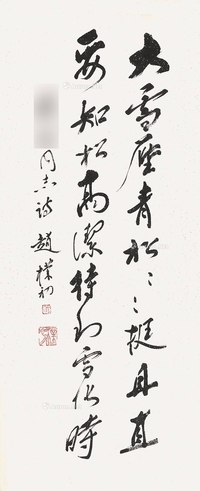 大雪壓青松〻挺且直
要知松高潔待到雪化時
同志诗 趙樸初